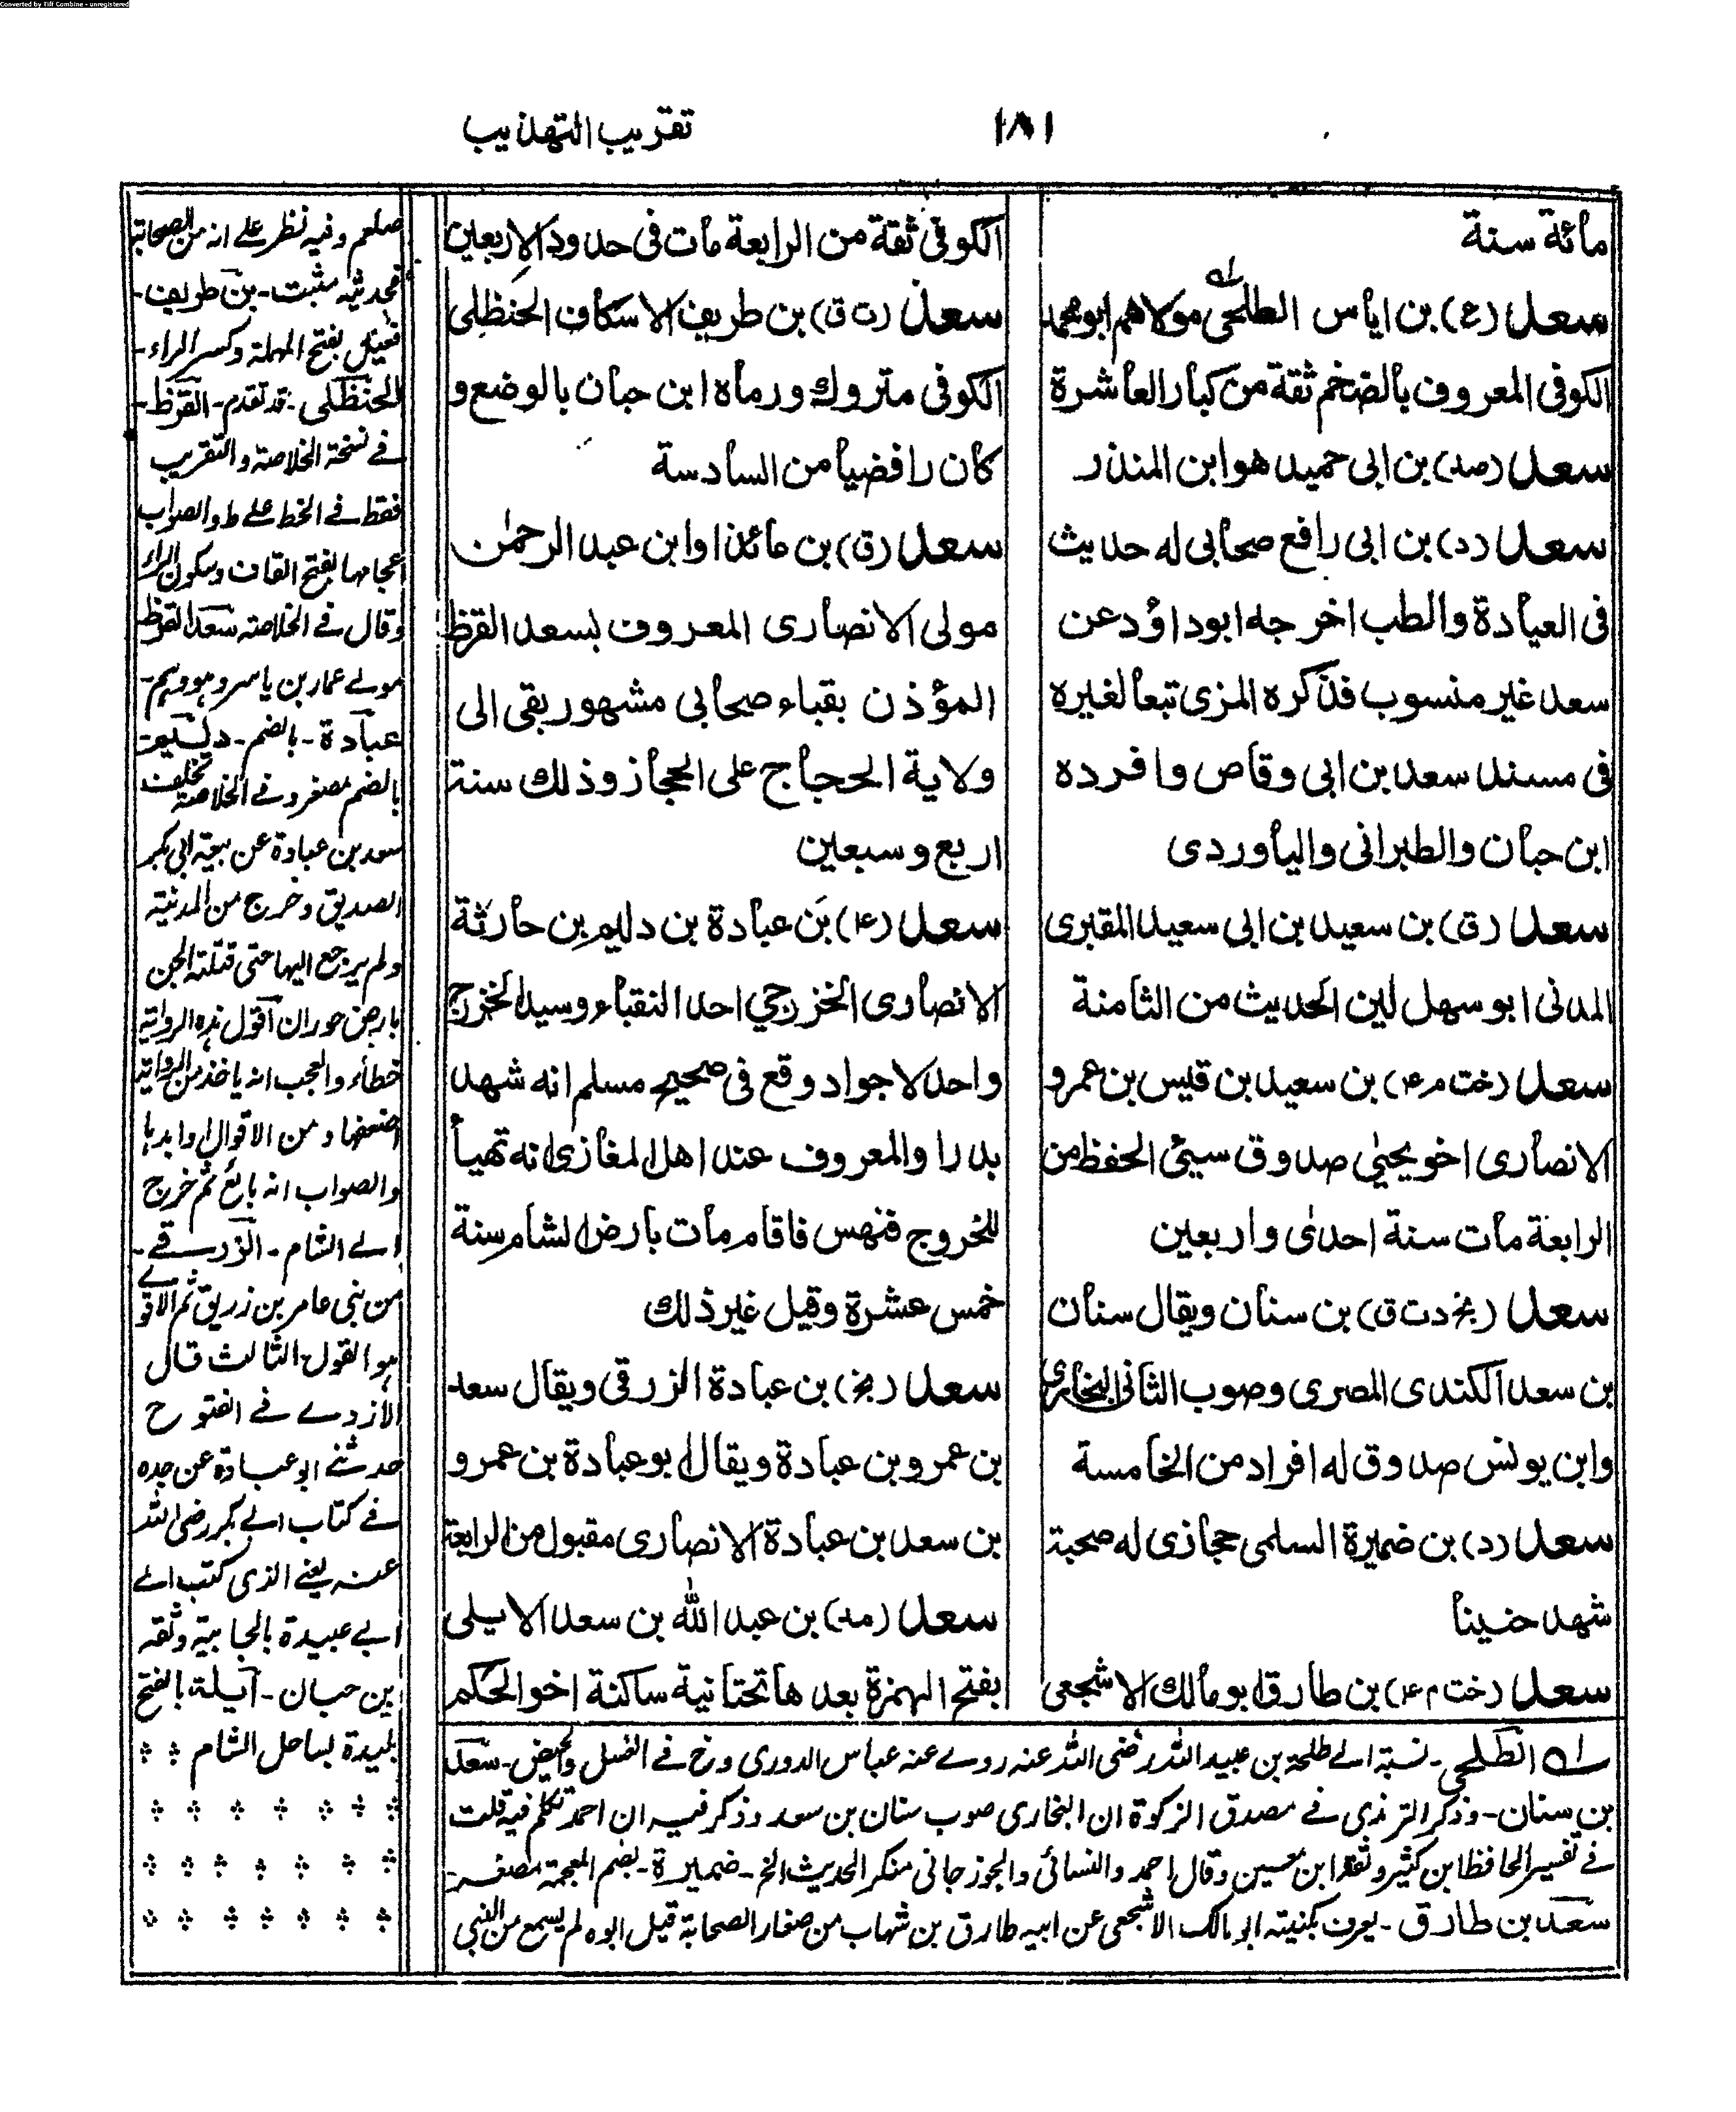 Converted by Tiff Combine - unregistered
تقريب التهذيب
١٨١
مائة سنة
سعد (ع) بن اياس الطلحى مولاهم ابو محمد
الكوفى المعروف بالضخم ثقة من كبار العاشرة
سعد (صد) بن ابى حميد هو ابن المنذر
سعد (د) بن ابى رافع صحابى له حديث
فى العيادة والطب اخرجه ابوداؤد عن
سعد غير منسوب فذكره المزى تبعا لغيره
فى مسند سعد بن ابى وقاص وافرده
ابن حبان والطبرانى والباوردى
سعد (ق) بن سعيد بن ابى سعيد المقبرى
المدنى ابو سهل لين الحديث من الثامنة
سعد (خت م ۴) بن سعيد بن قيس بن عمرو
الانصارى اخو يحيٰى صدوق سيئ الحفظ من
الرابعة مات سنة احدىٰ واربعين
سعد (بخ د ت ق) بن سنان ويقال سنان
بن سعد الكندى المصرى وصوب الثانى البخارى
وابن يونس صدوق له افراد من الخامسة
سعد (د) بن ضميرة السلمى حجازى له صحبة
شهد حنينا
سعد (خت م ۴) بن طارق ابو مالك الاشجعى
الكوفى ثقة من الرابعة مات فى حدود الاربعين
سعد (ت ق) بن طريف الاسكاف الحنظلى
الكوفى متروك ورماه ابن حبان بالوضع و
كان رافضيا من السادسة
سعد (ق) بن عائذ او ابن عبد الرحمٰن
مولى الانصارى المعروف بسعد القرظ
المؤذن بقباء صحابى مشهور بقى الى
ولاية الحجاج على الحجاز وذلك سنة
اربع وسبعين
سعد (۴) بن عبادة بن دليم بن حارثة
الانصارى الخزرجي احد النقباء وسيد الخزرج
واحد الاجواد وقع فى صحيح مسلم انه شهد
بدرا والمعروف عند اهل المغازى انه تهيأ
للخروج فنهس فاقام مات بارض الشام سنة
خمس عشرة وقيل غير ذلك
سعد (بخ) بن عبادة الزرقى ويقال سعد
بن عمرو بن عبادة ويقال ابو عبادة بن عمرو
بن سعد بن عبادة الانصارى مقبول من الرابعة
سعد (مد) بن عبد الله بن سعد الايلى
بفتح الهمزة بعدها تحتانية ساكنة اخو الحكم
له الطلحى - نسبة الے طلحة بن عبيد الله رضى الله عنه روے عنه عباس الدورى ورخ فے الغسل والحيض - سعد
بن سنان - وذكر الترمذى فے مصدق الزكوة ان البخارى صوب سنان بن سعد وذكر فيه ان احمد تكلم فيه قلت
فے تفسير الحافظ ابن كثير وثقه ابن معين وقال احمد والنسائى والجوزجانى منكر الحديث الخ - ضميرة - بضم المعجمة مصغر -
سعد بن طارق - يعرف بكنيته ابو مالك الاشجعى عن ابيه طارق بن شهاب من صغار الصحابة قيل ابوه لم يسمع من النبى
صلعم وفيه نظر على انه من الصحابة
فحديثه مثبت - بن طريف -
فعيل بفتح المهملة وكسر الراء -
الحنظلى - قد تقدم - القرظ -
فے نسخة الخلاصة والتقريب
فقط فے الخط على ط والصواب
اعجامها بفتح القاف وسكون الراء
وقال فے الخلاصة سعد القرظ
مولے عمار بن ياسر وهو وهم -
عبادة - بالضم - دليم -
بالضم مصغر وفے الخلاصة تخلف
سعد بن عبادة عن بيعة ابى بكر
الصديق وخرج من المدينة
ولم يرجع اليها حتى قتلته الجن
بارض حوران اقول هذه الرواية
خطاء والعجب انه ياخذ من الرواية
اضعفها ومن الاقوال
والصواب انه بايع ثم خرج
الے الشام - الزرقے -
من بنى عامر بن زريق ثم الاقوے
هو القول الثالث قال
الازدے فے الفتوح
حدثنے ابو عبادة عن جده
فے كتاب ابے بكر رضى الله
عنه يعنے الذى كتب الے
ابے عبيدة بالجابية وثقه
ابن حبان - آيلة بالفتح
بليدة بساحل الشام